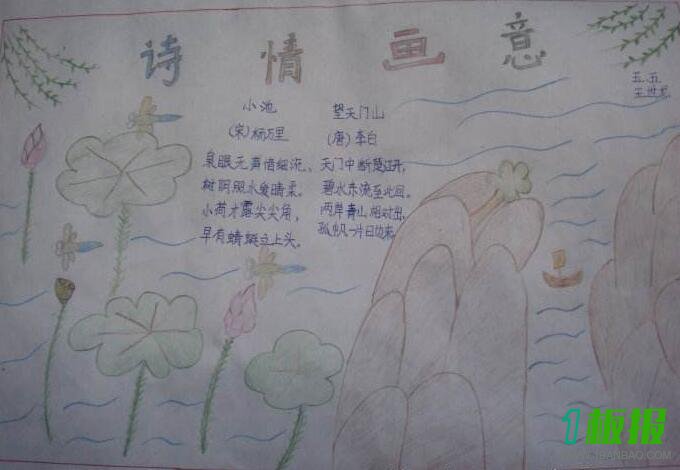 诗情画意
五.五
小池
(宋)杨万里
泉眼无声惜细流、
树阴照水爱晴柔。
小荷才露尖尖角,
早有蜻蜓立上头。
望天门山
(唐)李白
天门中断楚江开,
碧水东流至此回。
两岸青山相对出,
孤帆一片日边来。
1板报